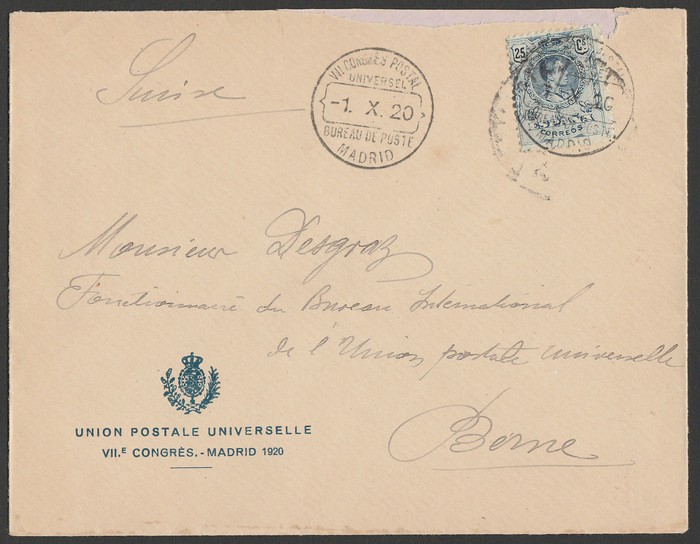 Suisse
VII. CONGRÈS POSTAL
UNIVERSEL
-1. X. 20
BUREAU DE POSTE
MADRID
25 Cs
CORREOS
MADRID
Monsieur Desgraz
Fonctionnaire du Bureau International
de l'Union postale universelle
Berne
UNION POSTALE UNIVERSELLE
VII.E CONGRÈS.-MADRID 1920